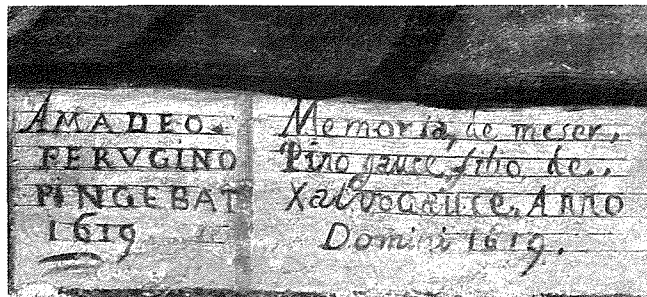 AMADEO.
PERVGINO
PINGEBAT
1619
Memoria, de meser,
Piro gauce, filio, de,.
Xalvogauce, Anno
Domini 1619.